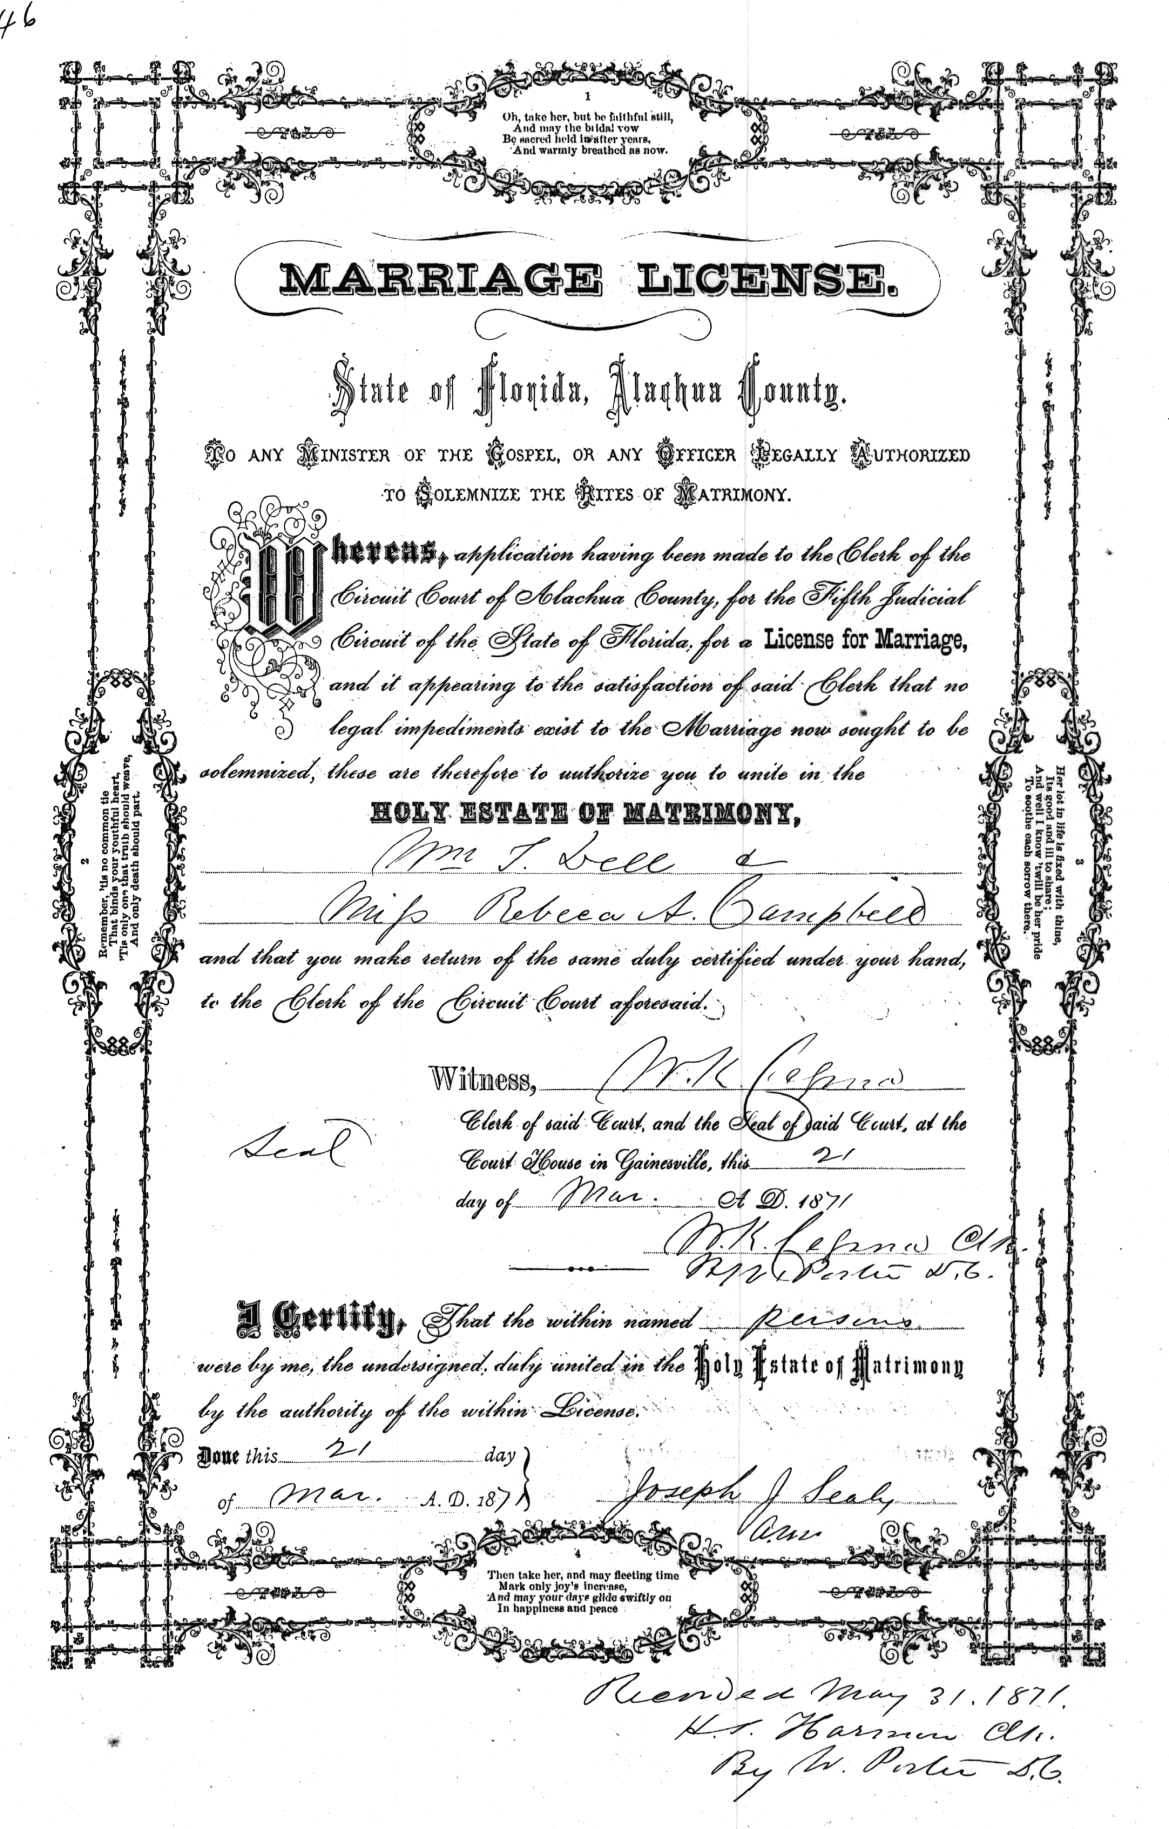 46
1
Oh, take her, but be faithful still,
And may the bridal vow
Be sacred held in after years,
And warmly breathed as now.
MARRIAGE LICENSE.
State of Florida, Alachua County.
TO ANY MINISTER OF THE GOSPEL, OR ANY OFFICER LEGALLY AUTHORIZED
TO SOLEMNIZE THE RITES OF MATRIMONY.
Whereas, application having been made to the Clerk of the
Circuit Court of Alachua County, for the Fifth Judicial
Circuit of the State of Florida, for a License for Marriage,
and it appearing to the satisfaction of said Clerk that no
legal impediments exist to the Marriage now sought to be
solemnized, these are therefore to authorize you to unite in the
HOLY ESTATE OF MATRIMONY,
Wm T. Dell &
Miss Rebeca A. Campbell
and that you make return of the same duly certified under your hand,
to the Clerk of the Circuit Court aforesaid.
Witness, W.K. Cessna
Clerk of said Court, and the Seal of said Court, at the
Seal
Court House in Gainesville, this 21
day of Mar. A D. 1871
W.K. Cessna Clk.
Porter D.C.
I Certify, That the within named persons
were by me, the undersigned, duly united in the Holy Estate of Matrimony
by the authority of the within License.
Done this 21 day
of Mar. A. D. 1871
Joseph J Sealy
2
Remember, 'tis no common tie
That binds your youthful heart,
'Tis only one that truth should weave,
And only death should part.
3
Her lot in life is fixed with thine,
Its good and ill to share;
And well I know 'twill be her pride
To soothe each sorrow there.
Then take her, and may fleeting time
Mark only joy's increase,
And may your days glide swiftly on
In happiness and peace
Recorded May 31. 1871.
Harmon Clk.
By W. Porter D.C.